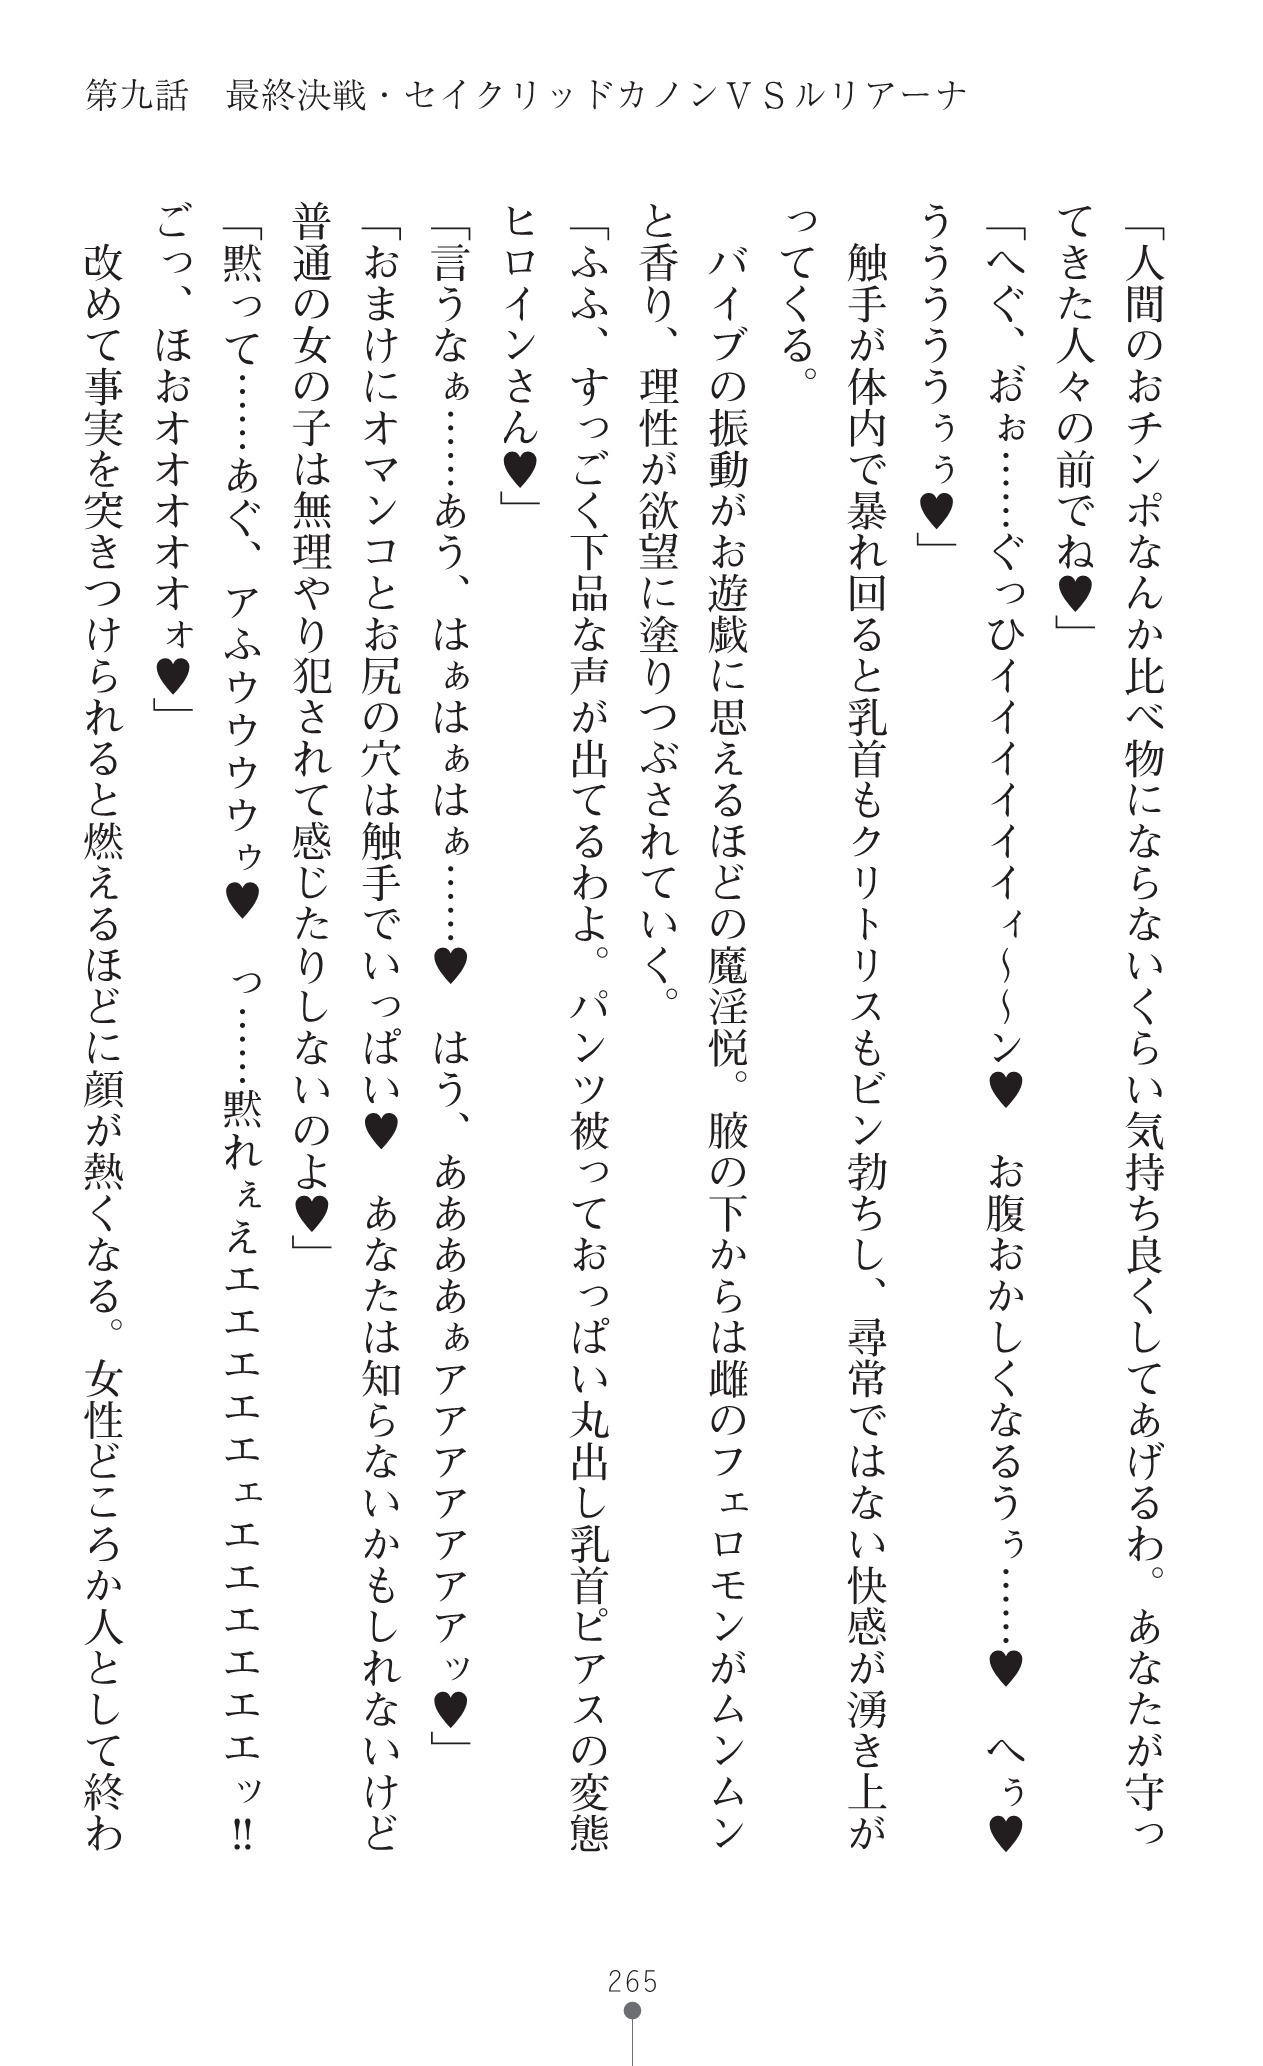 第九話　最終決戦・セイクリッドカノンＶＳルリアーナ
「人間のおチンポなんか比べ物にならないくらい気持ち良くしてあげるわ。あなたが守っ
てきた人々の前でね♥」
「へぐ、お゛ぉ……ぐっひイイイイイイィ～～ン♥　お腹おかしくなるうぅ……♥　へぅ♥
うううううぅぅ♥」
　触手が体内で暴れ回ると乳首もクリトリスもビン勃ちし、尋常ではない快感が湧き上が
ってくる。
　バイブの振動がお遊戯に思えるほどの魔淫悦。腋の下からは雌のフェロモンがムンムン
と香り、理性が欲望に塗りつぶされていく。
「ふふ、すっごく下品な声が出てるわよ。パンツ被っておっぱい丸出し乳首ピアスの変態
ヒロインさん♥」
「言うなぁ……あう、はぁはぁはぁ……♥　はう、ああああぁアアアアアアアッ♥」
「おまけにオマンコとお尻の穴は触手でいっぱい♥　あなたは知らないかもしれないけど
普通の女の子は無理やり犯されて感じたりしないのよ♥」
「黙って……あぐ、アふウウウウゥ♥　っ……黙れぇえエエエエエェエエエエエエッ‼
ごっ、ほおオオオオオォ♥」
　改めて事実を突きつけられると燃えるほどに顔が熱くなる。女性どころか人として終わ
265